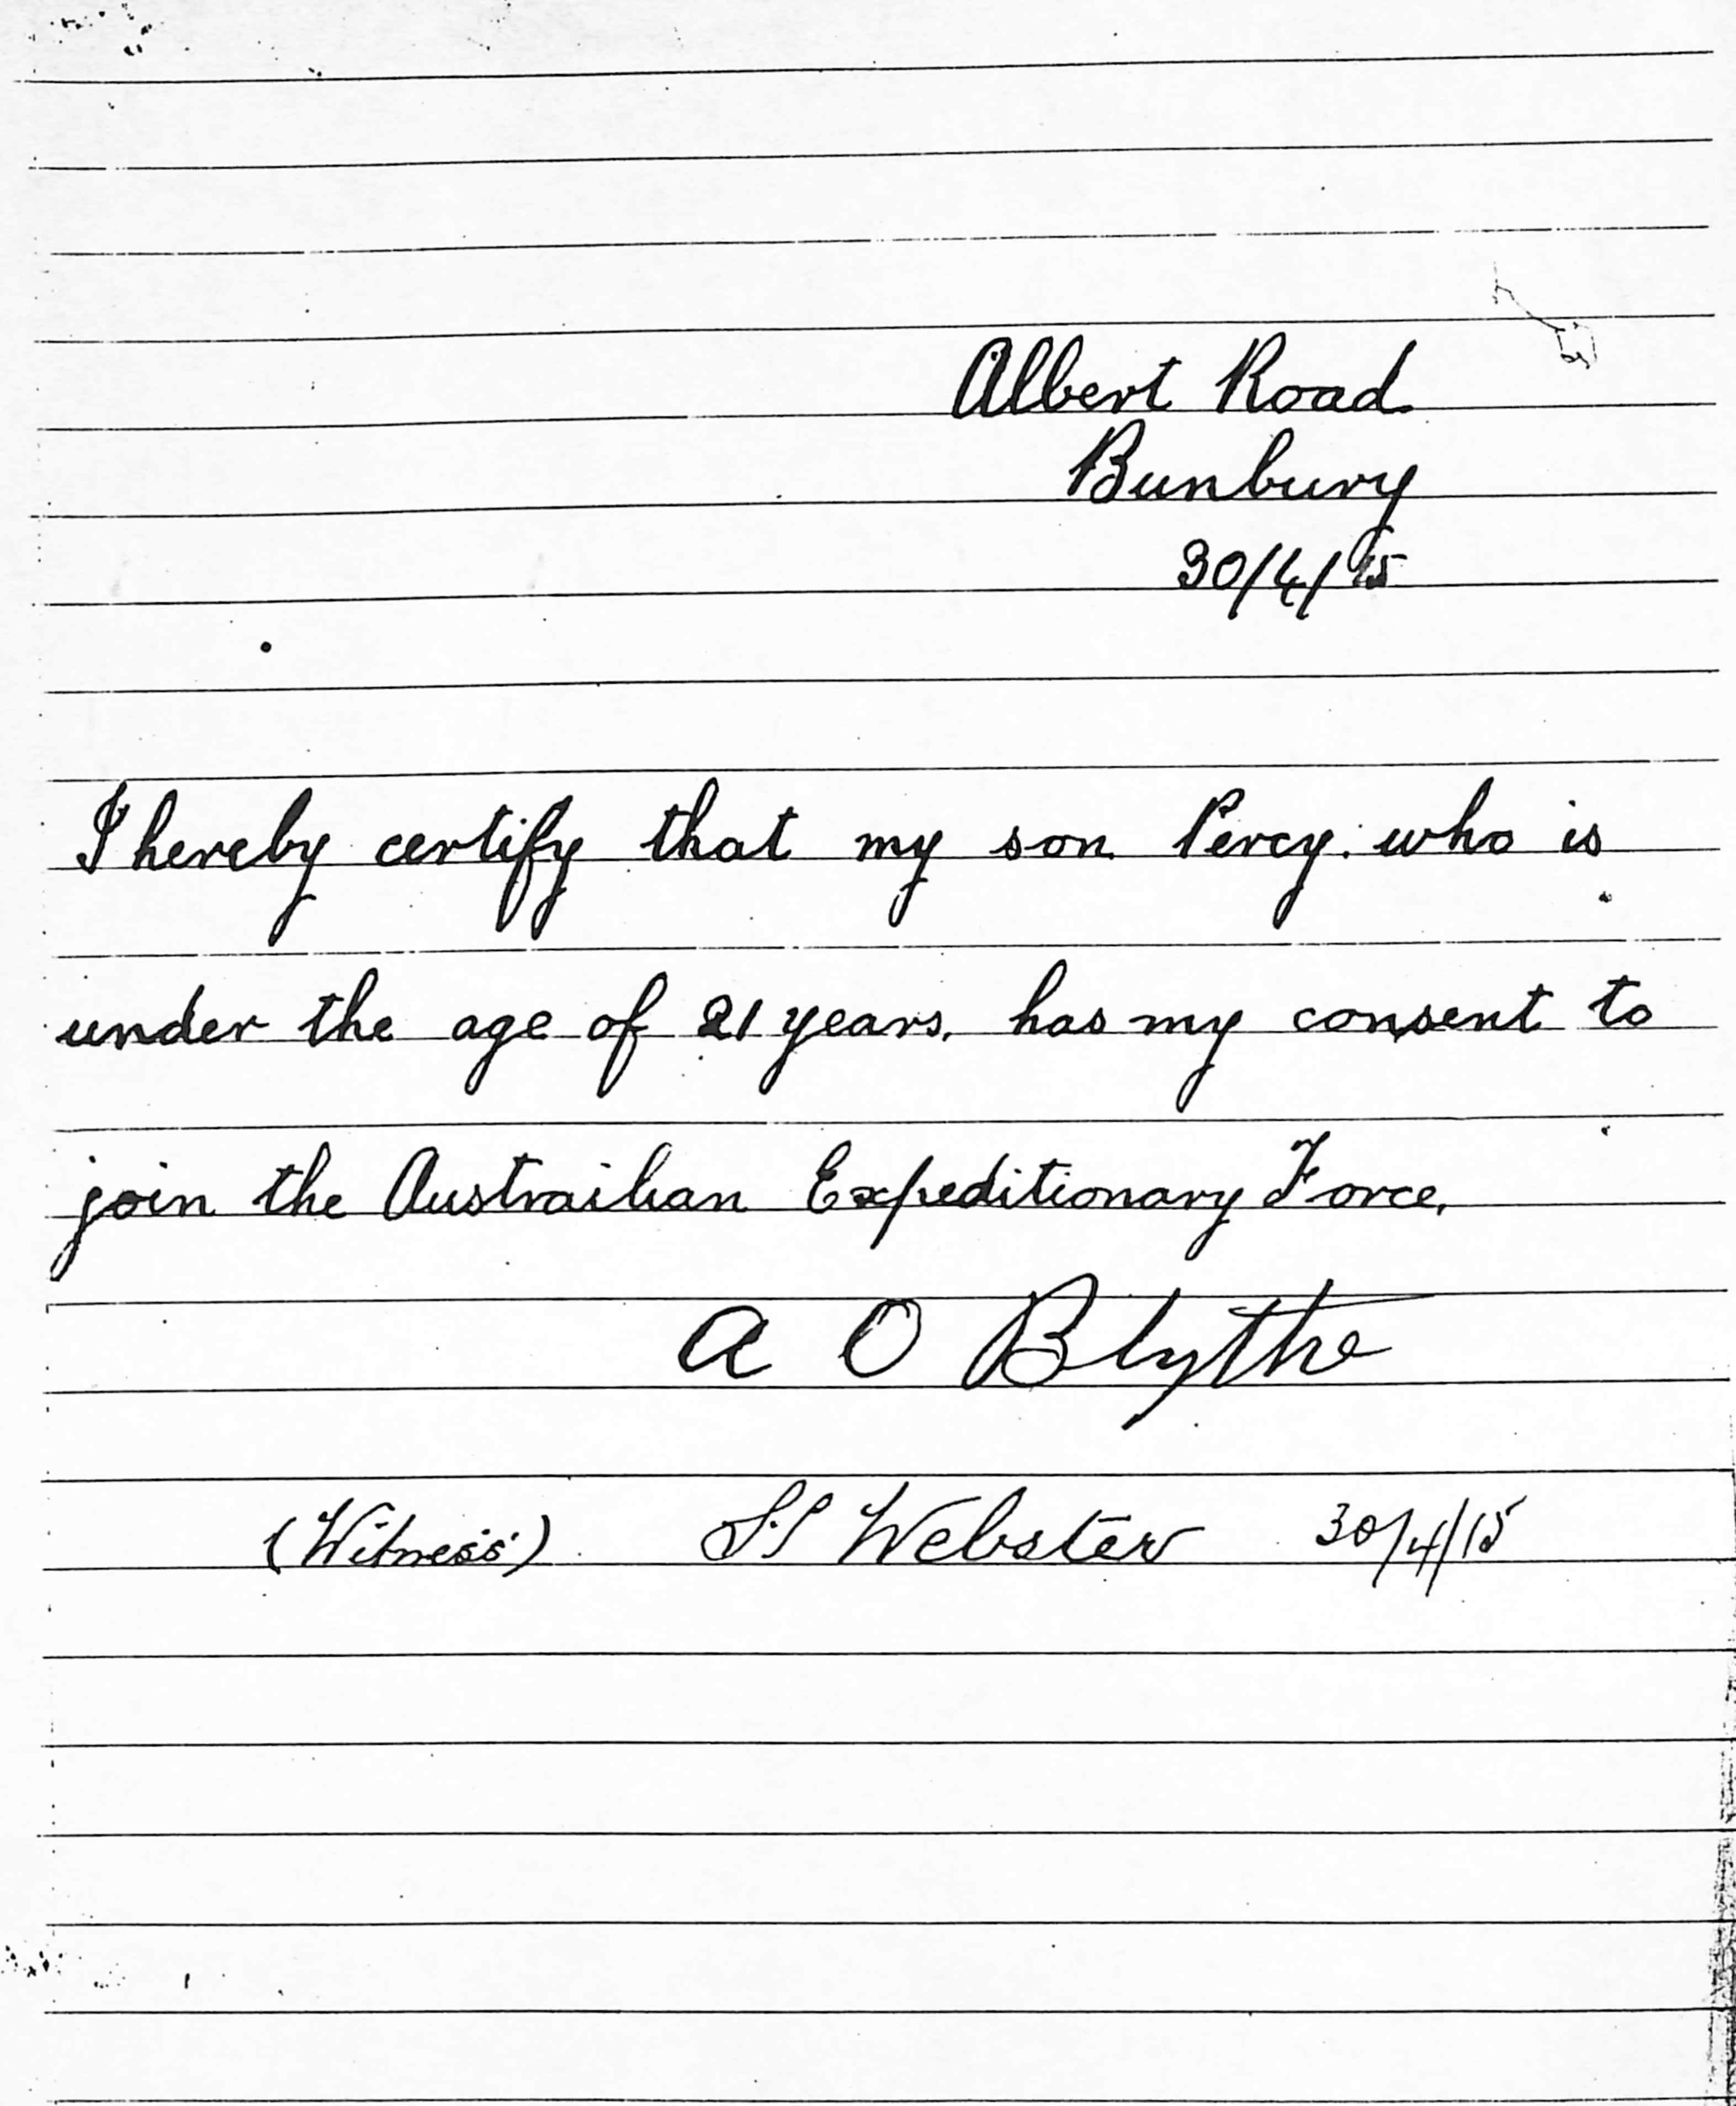 Albert Road
Bunbury
30/4/15
I hereby certify that my son Percy. who is
under the age of 21 years, has my consent to
join the Austrailian Expeditionary Force,
A O Blythe
(Witness) Webster 30/4/15